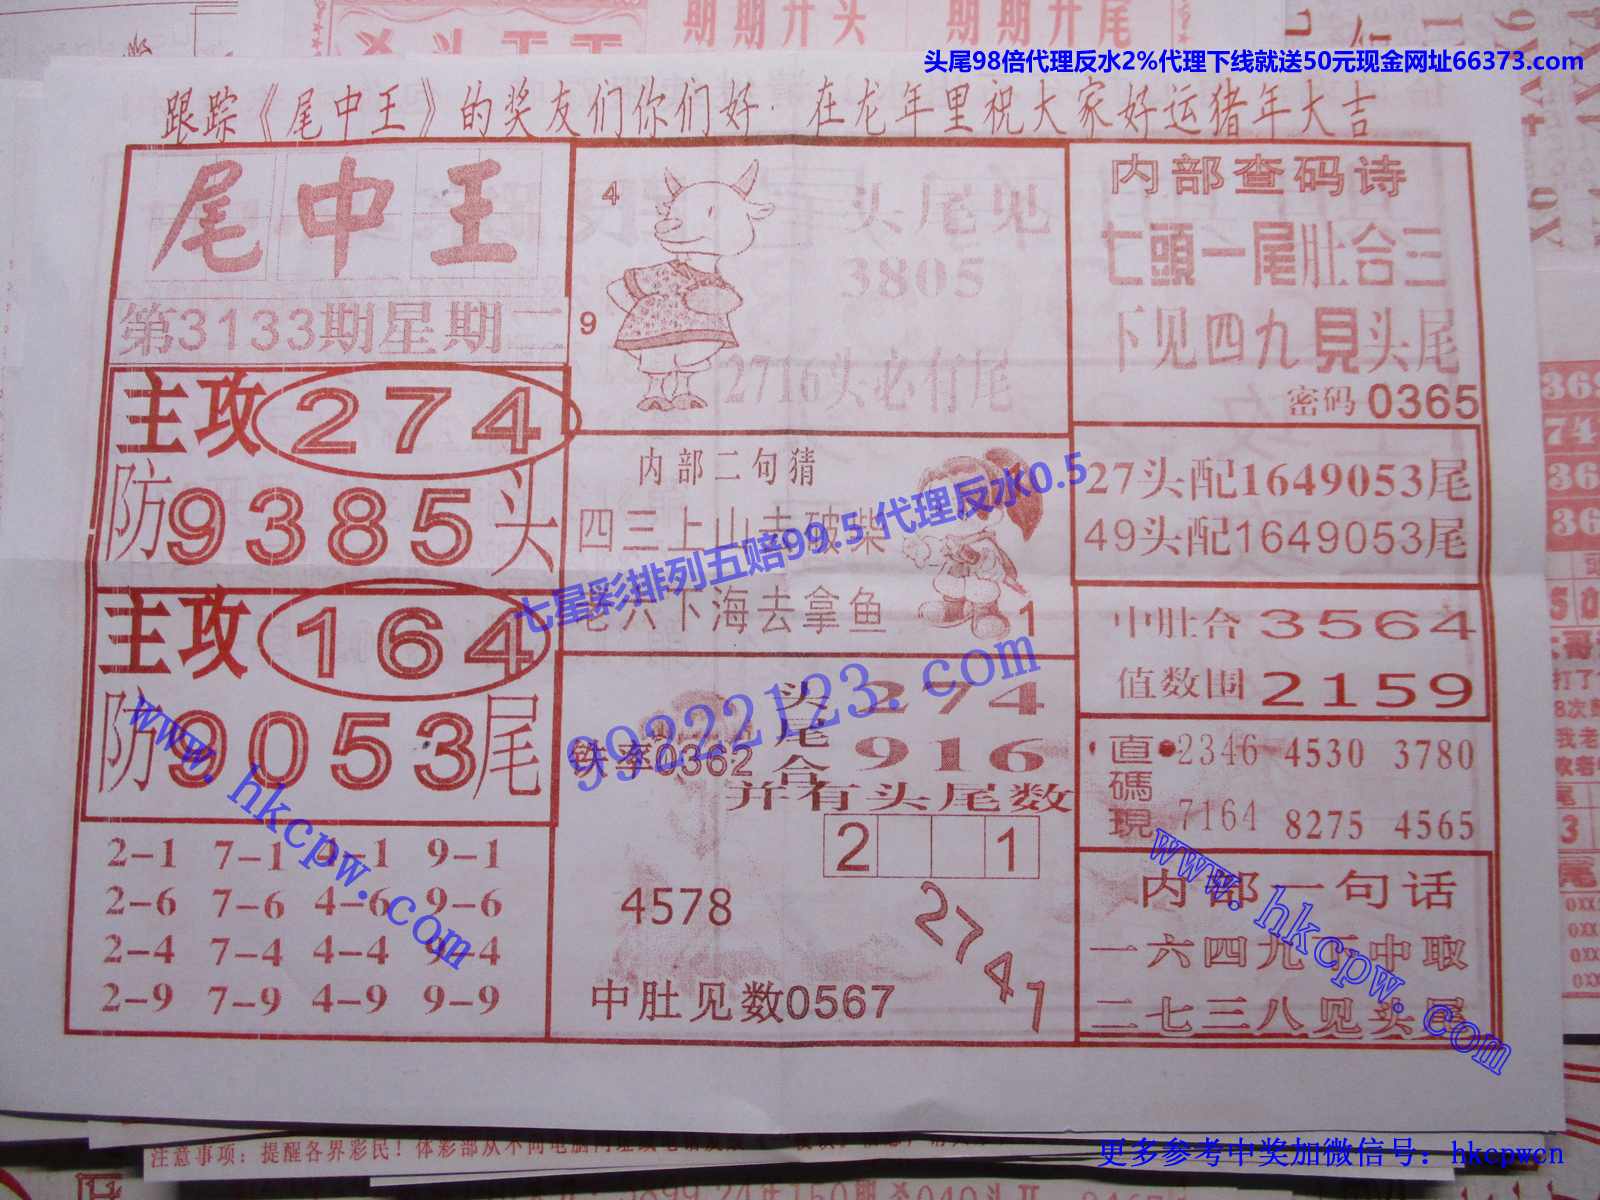 期期开头 期期开尾
头尾98倍代理反水2%代理下线就送50元现金网址66373.com
跟踪《尾中王》的奖友们你们好·在龙年里祝大家好运猪年大吉
尾中王
第3133期星期二
主攻274
防9385头
主攻164
防9053尾
2-1 7-1 4-1 9-1
2-6 7-6 4-6 9-6
2-4 7-4 4-4 9-4
2-9 7-9 4-9 9-9
4
9
头尾见
3805
2716头必有尾
内部二句猜
四三上山去破柴
老六下海去拿鱼
1
七星彩排列五赔99.5 代理反水0.5
99222123.com
头尾合
274
916
铁率0362
并有头尾数
2 1
4578
2741
中肚见数0567
内部查码诗
七頭一尾肚合三
下见四九見头尾
密码 0365
27头配1649053尾
49头配1649053尾
中肚合 3564
值数围 2159
直碼現
2346 4530 3780
7164 8275 4565
内部一句话
一六四九百中取
二七三八见头尾
www.hkcpw.com
www.hkcpw.com
注意事项：提醒各界彩民！体彩部从不向
更多参考中奖加微信号：hkcpwcn